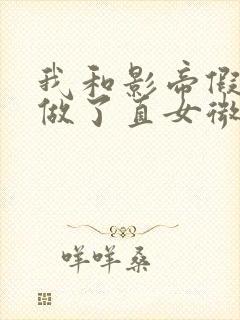 我和影帝假
做了直女微
咩咩桑